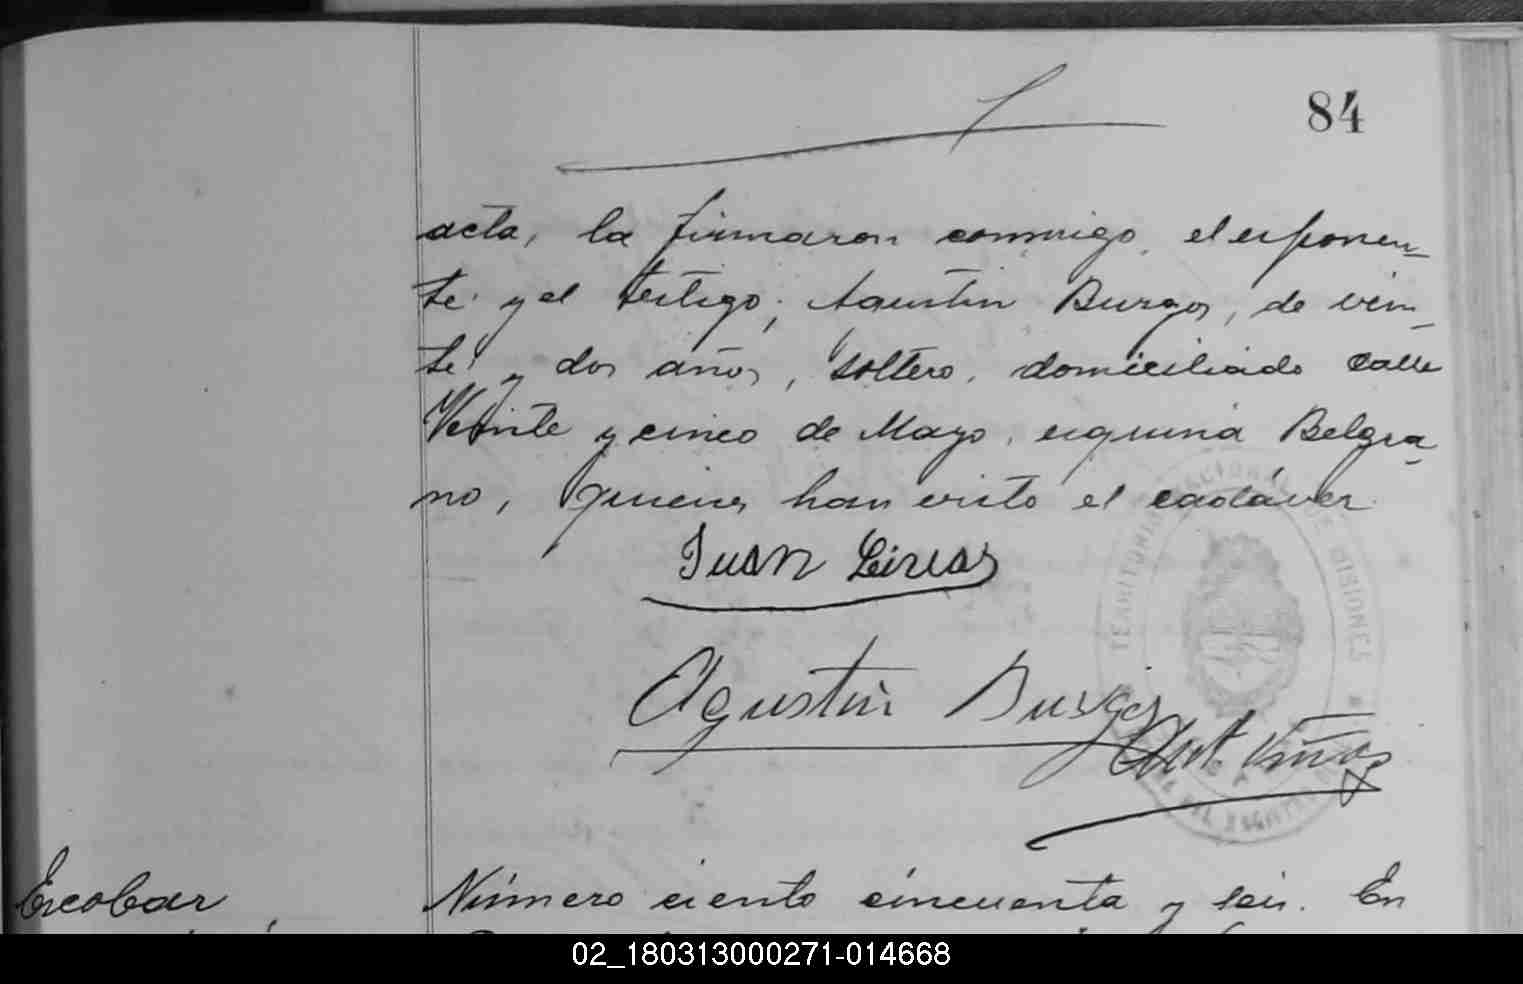 84
acta, la firmaron conmigo, el esponen-
te y el testigo; Agustin Burgos, de vein-
te y dos años, soltero, domiciliado calle
Veinte y cinco de Mayo, esquina Belgra-
no, quienes han visto el cadáver
Juan
Agustin Burgos
Viñas
Escobar
Número ciento cincuenta y seis. En
02_180313000271-014668